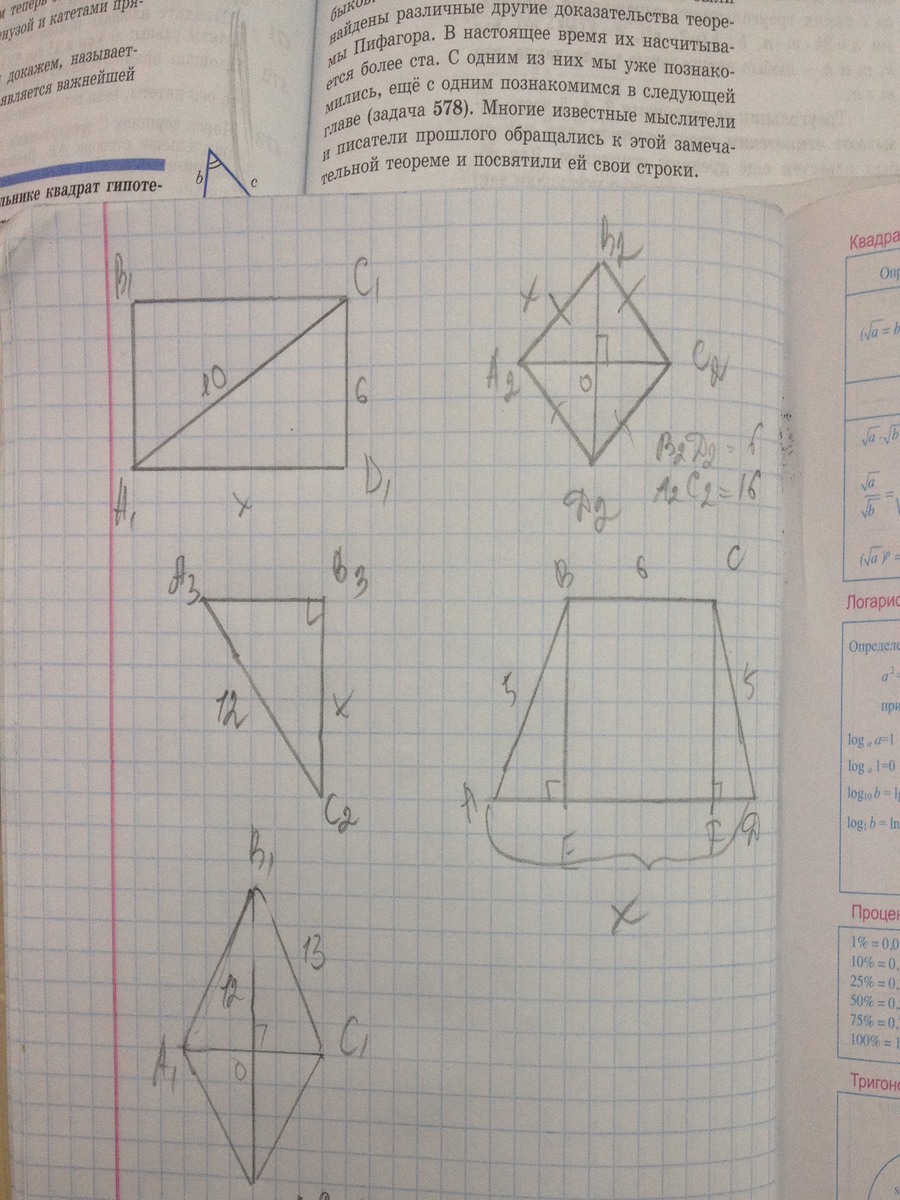 м теперь
енузой и катетами пря-
докажем, называет-
является важнейшей
льнике квадрат гипоте-
b
c
быков.
найдены различные другие доказательства теоре-
мы Пифагора. В настоящее время их насчитыва-
ется более ста. С одним из них мы уже познако-
мились, ещё с одним познакомимся в следующей
главе (задача 578). Многие известные мыслители
и писатели прошлого обращались к этой замеча-
тельной теореме и посвятили ей свои строки.
B₁ C₁
10
6
A₁ D₁
x
B₂
x
A₂ C₂
O
B₂D₂ =
A₂C₂ = 16
D₂
A₃ B₃
12
x
C₂
B 6 C
5 5
A E F D
x
B₁
12 13
A₁ C₁
O
Квадра
Опр
(√a = b
√a · √b
√a
√b =
(√a)ᵖ =
Логариф
Определе
a
при
logₐ a=1
logₐ 1=0
log₁₀ b = lg
log₁ b = ln
Процен
1% = 0,0
10% = 0,
25% = 0,
50% = 0,
75% = 0,
100% = 1
Тригоно